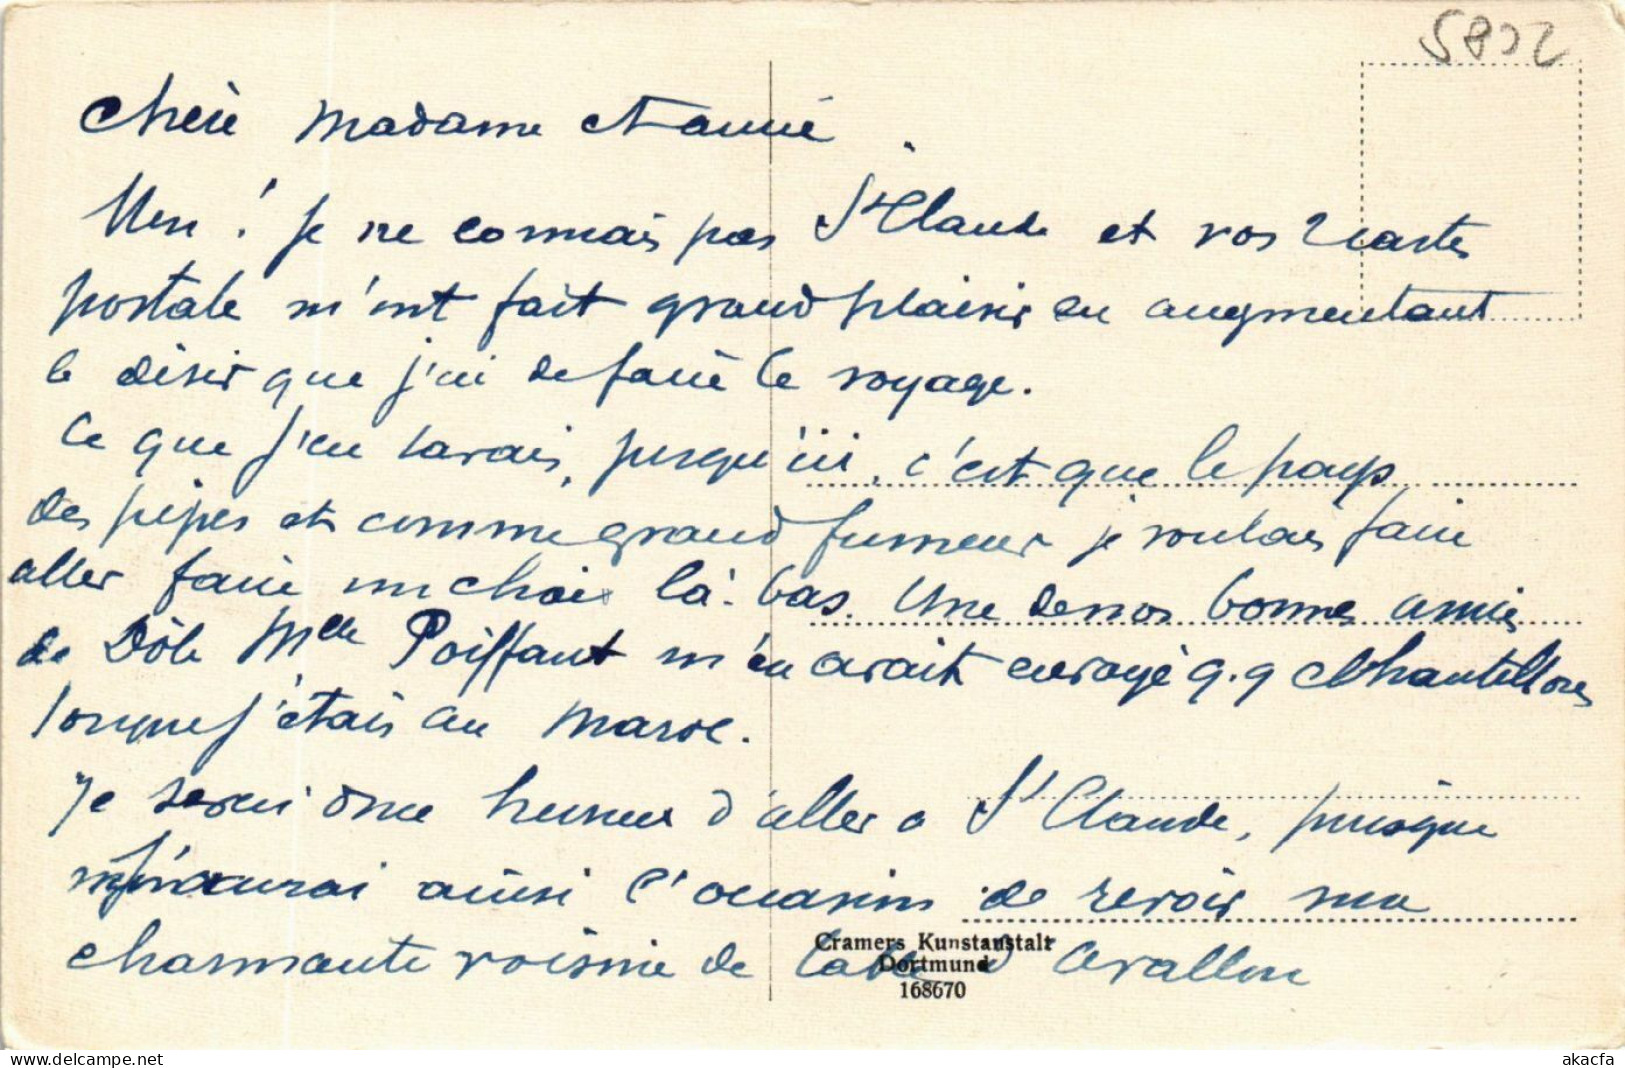 5802
Chère Madame
Non ! je ne connais pas St Claude et vos 2 cartes
postale m'ont fait grand plaisir en augmentant
le désir que j'ai de faire le voyage.
Ce que j'en savais, jusqu'ici, c'est que le pays
des pipes et comme grand fumeur je voulais faire
aller faire un choix là-bas. Une de nos bonnes amies
de Dôle Mlle Poiffaut m'en avait envoyé q.q échantillons
lorsque j'étais au Maroc.
Je serai donc heureux d'aller a St Claude, puisque
j'aurai ainsi l'occasion de revoir ma
charmante voisine de table d'Avallon
Cramers Kunstanstalt
Dortmund
168670
akacfa
www.delcampe.net